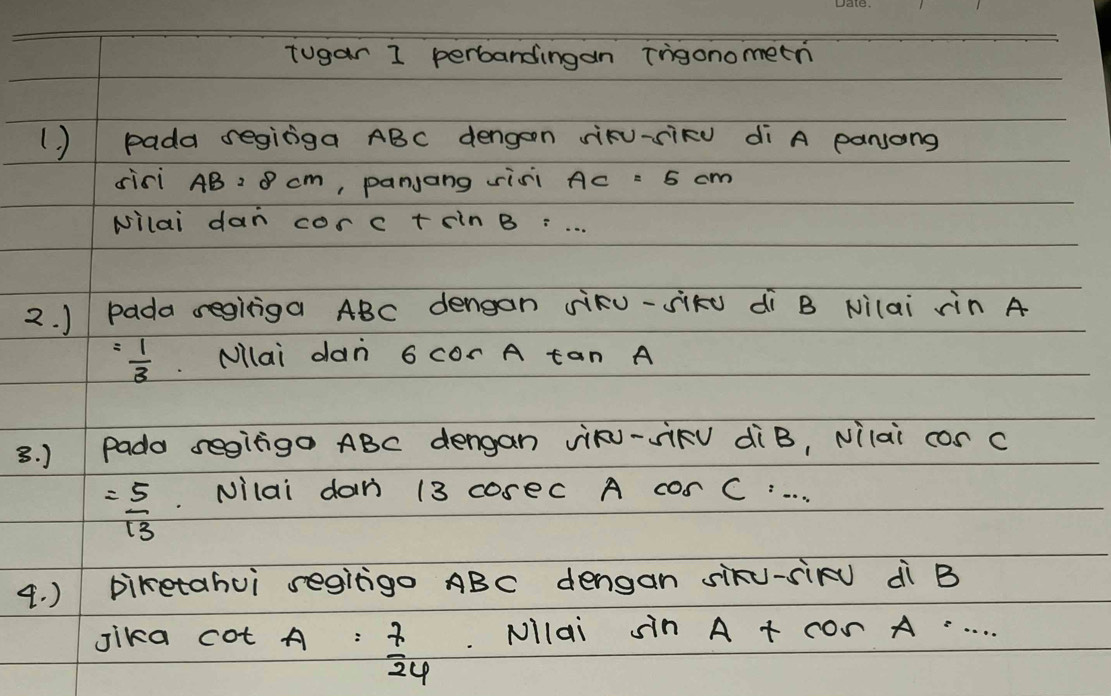 Date. / /
Tugas I perbandingan Trigonometri
1.) pada segitiga ABC dengan siku-siku di A panjang
sisi AB = 8 cm, panjang sisi AC = 6 cm
Nilai dari cos C + sin B = ...
2.) pada segitiga ABC dengan siku-siku di B Nilai sin A
= 1/3 . Nilai dari 6 cos A tan A
3.) pada segitiga ABC dengan siku-siku di B, Nilai cos C
= 5/13 . Nilai dari 13 cosec A cos C = ...
4.) Diketahui segitiga ABC dengan siku-siku di B
Jika cot A = 7/24 . Nilai sin A + cos A = ....